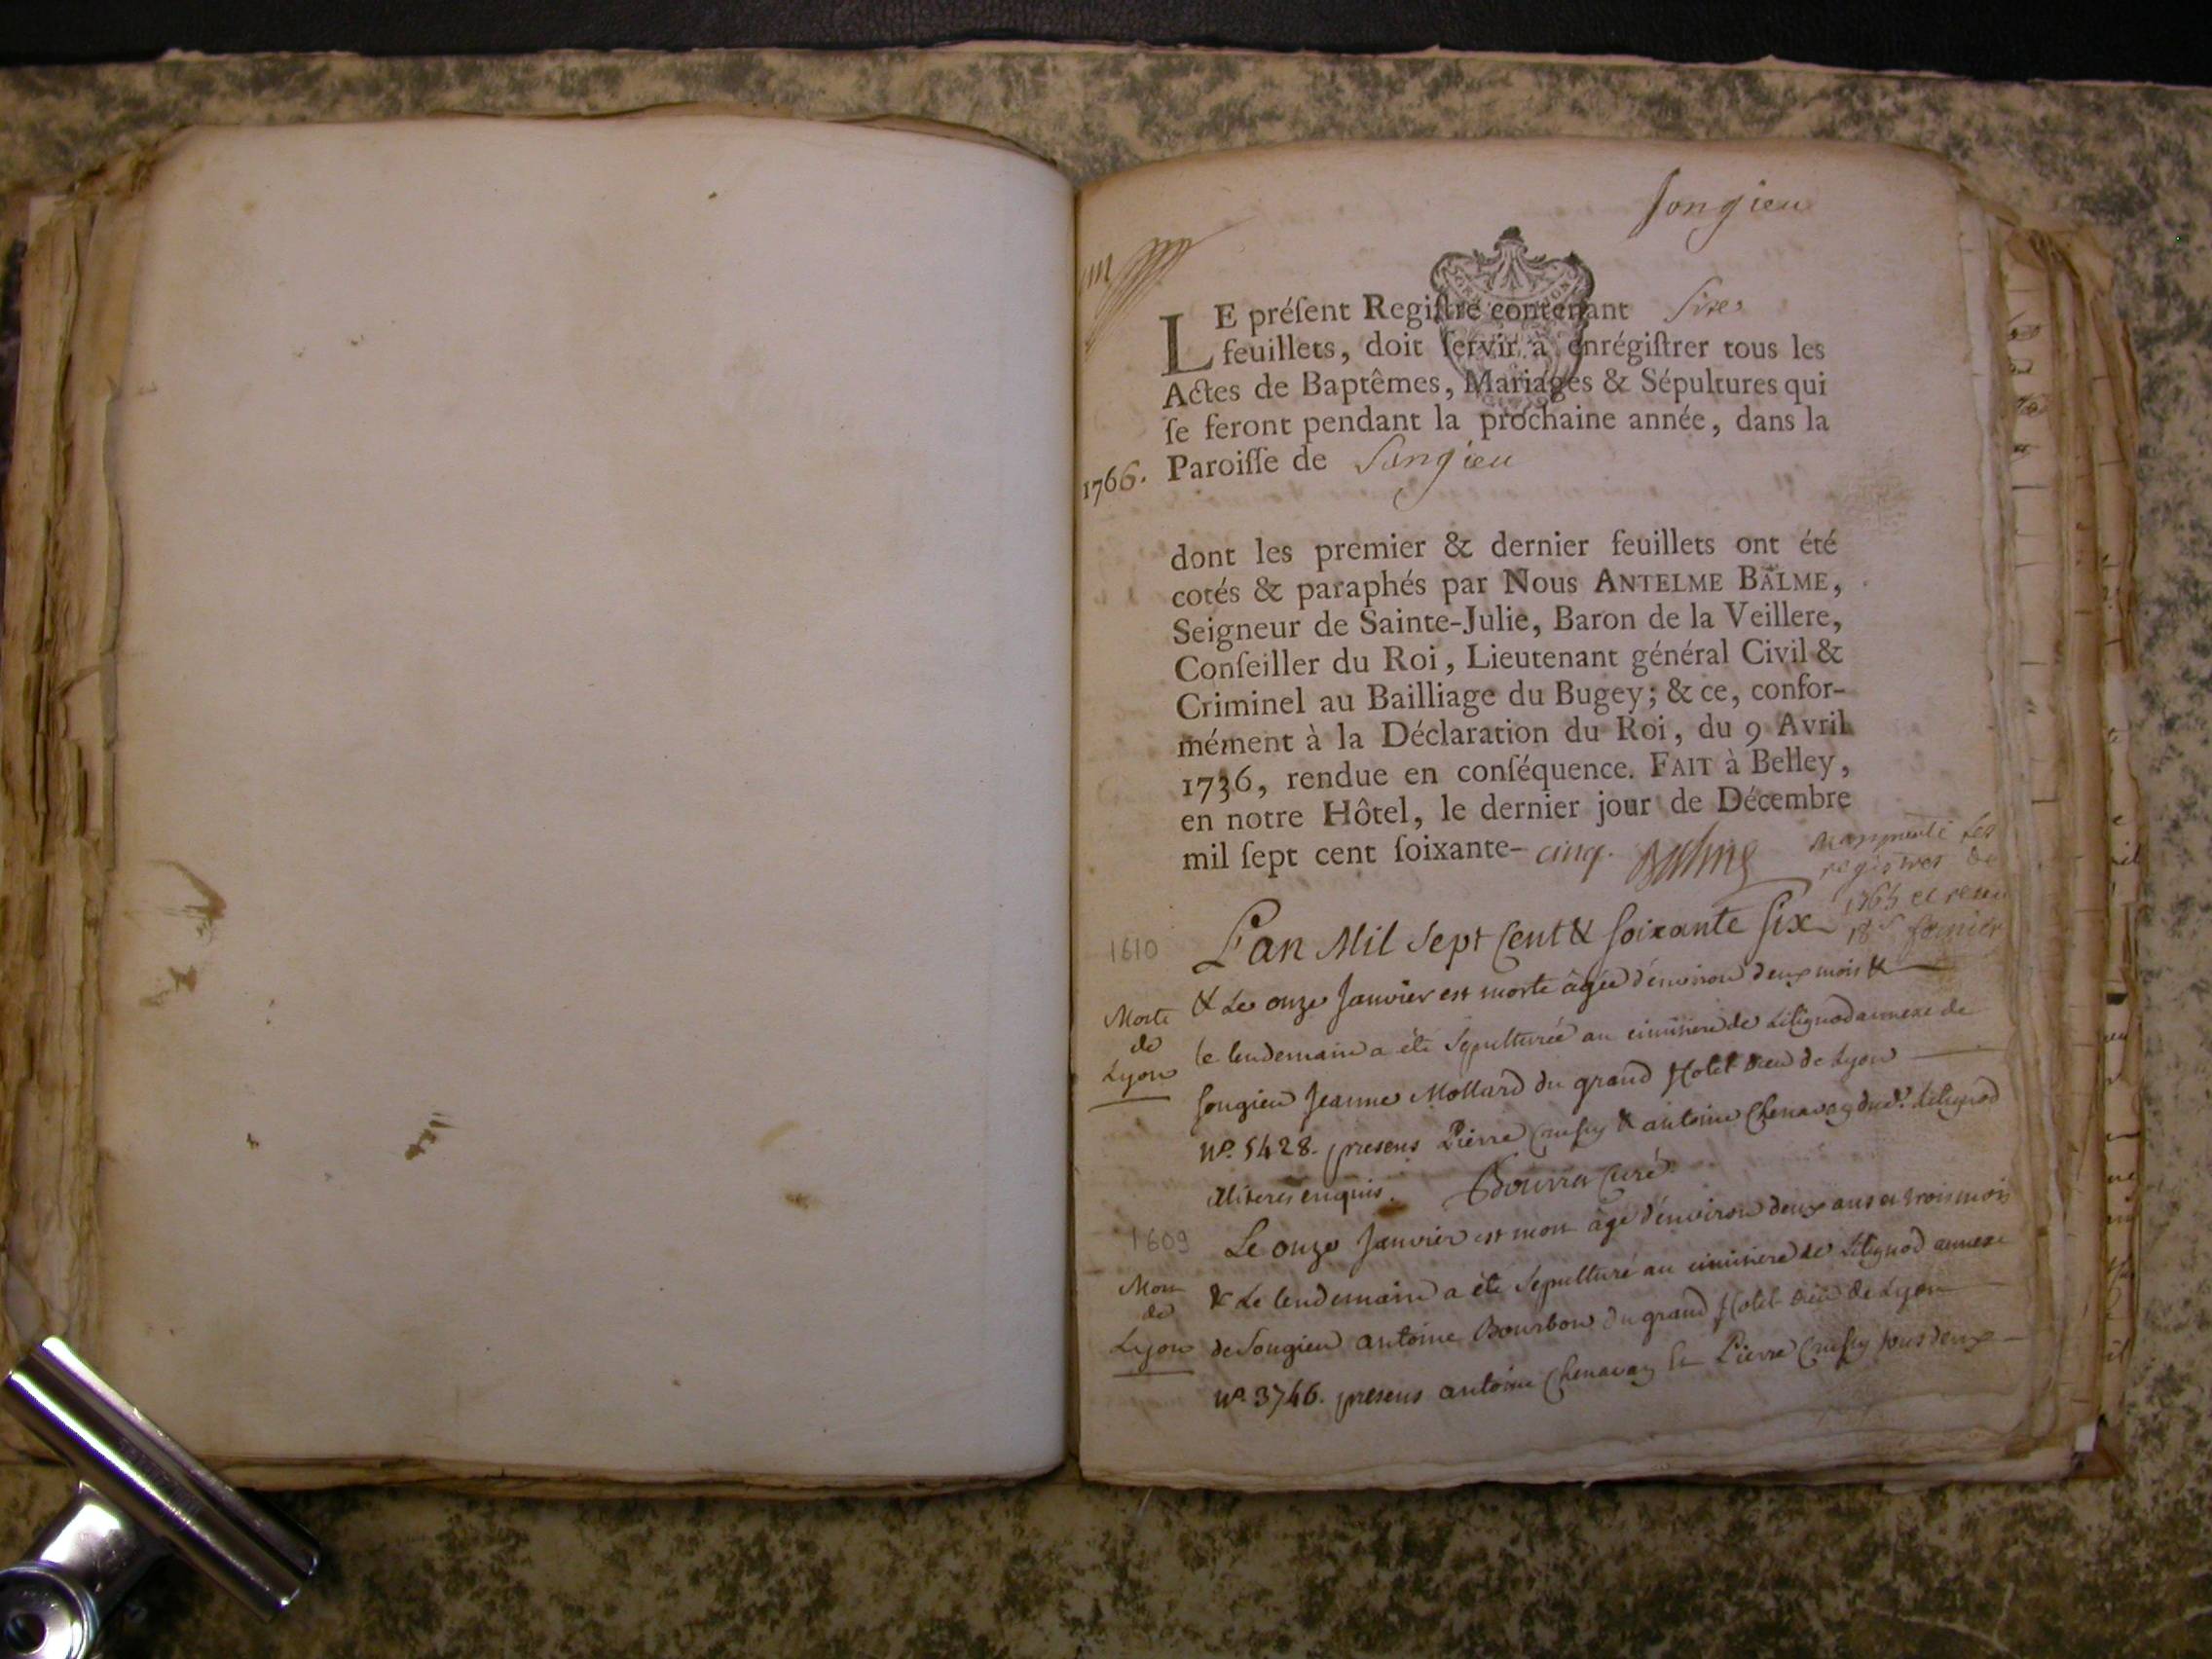 Songieu
LE préſent Regiſtre contenant Sixe
feuillets, doit ſervir à enrégiſtrer tous les
Actes de Baptêmes, Mariages & Sépultures qui
ſe feront pendant la prochaine année, dans la
1766. Paroiſſe de Songieu
dont les premier & dernier feuillets ont été
cotés & paraphés par Nous ANTELME BALME,
Seigneur de Sainte-Julie, Baron de la Veillere,
Conſeiller du Roi, Lieutenant général Civil &
Criminel au Bailliage du Bugey; & ce, confor-
mément à la Déclaration du Roi, du 9 Avril
1736, rendue en conſéquence. FAIT à Belley,
en notre Hôtel, le dernier jour de Décembre
mil ſept cent ſoixante- cinq. Balme
les
registres de
1765 et
1610
L'an Mil Sept Cent & soixante six
& Le onze Janvier est morte âgée d'environ deux mois &
Morte
de
Lyon
le lendemain a été sepulturée au cimitiere de Litignod annexe de
songieu Jeanne Mollard du grand Hotel Dieu de Lyon
n.º 5428. presens Pierre & antoine Chenavay du d.t Litignod
illiteres enquis. Bourra Curé
1609
Le onze Janvier est mort âgé d'environ deux ans et trois mois
Mort
de
Lyon
& Le lendemain a été sepulturé au cimitiere de Litignod annexe
de songieu antoine Bourbon du grand Hotel Dieu de Lyon
n.º 3746. presens antoine Chenavay et Pierre tous deux